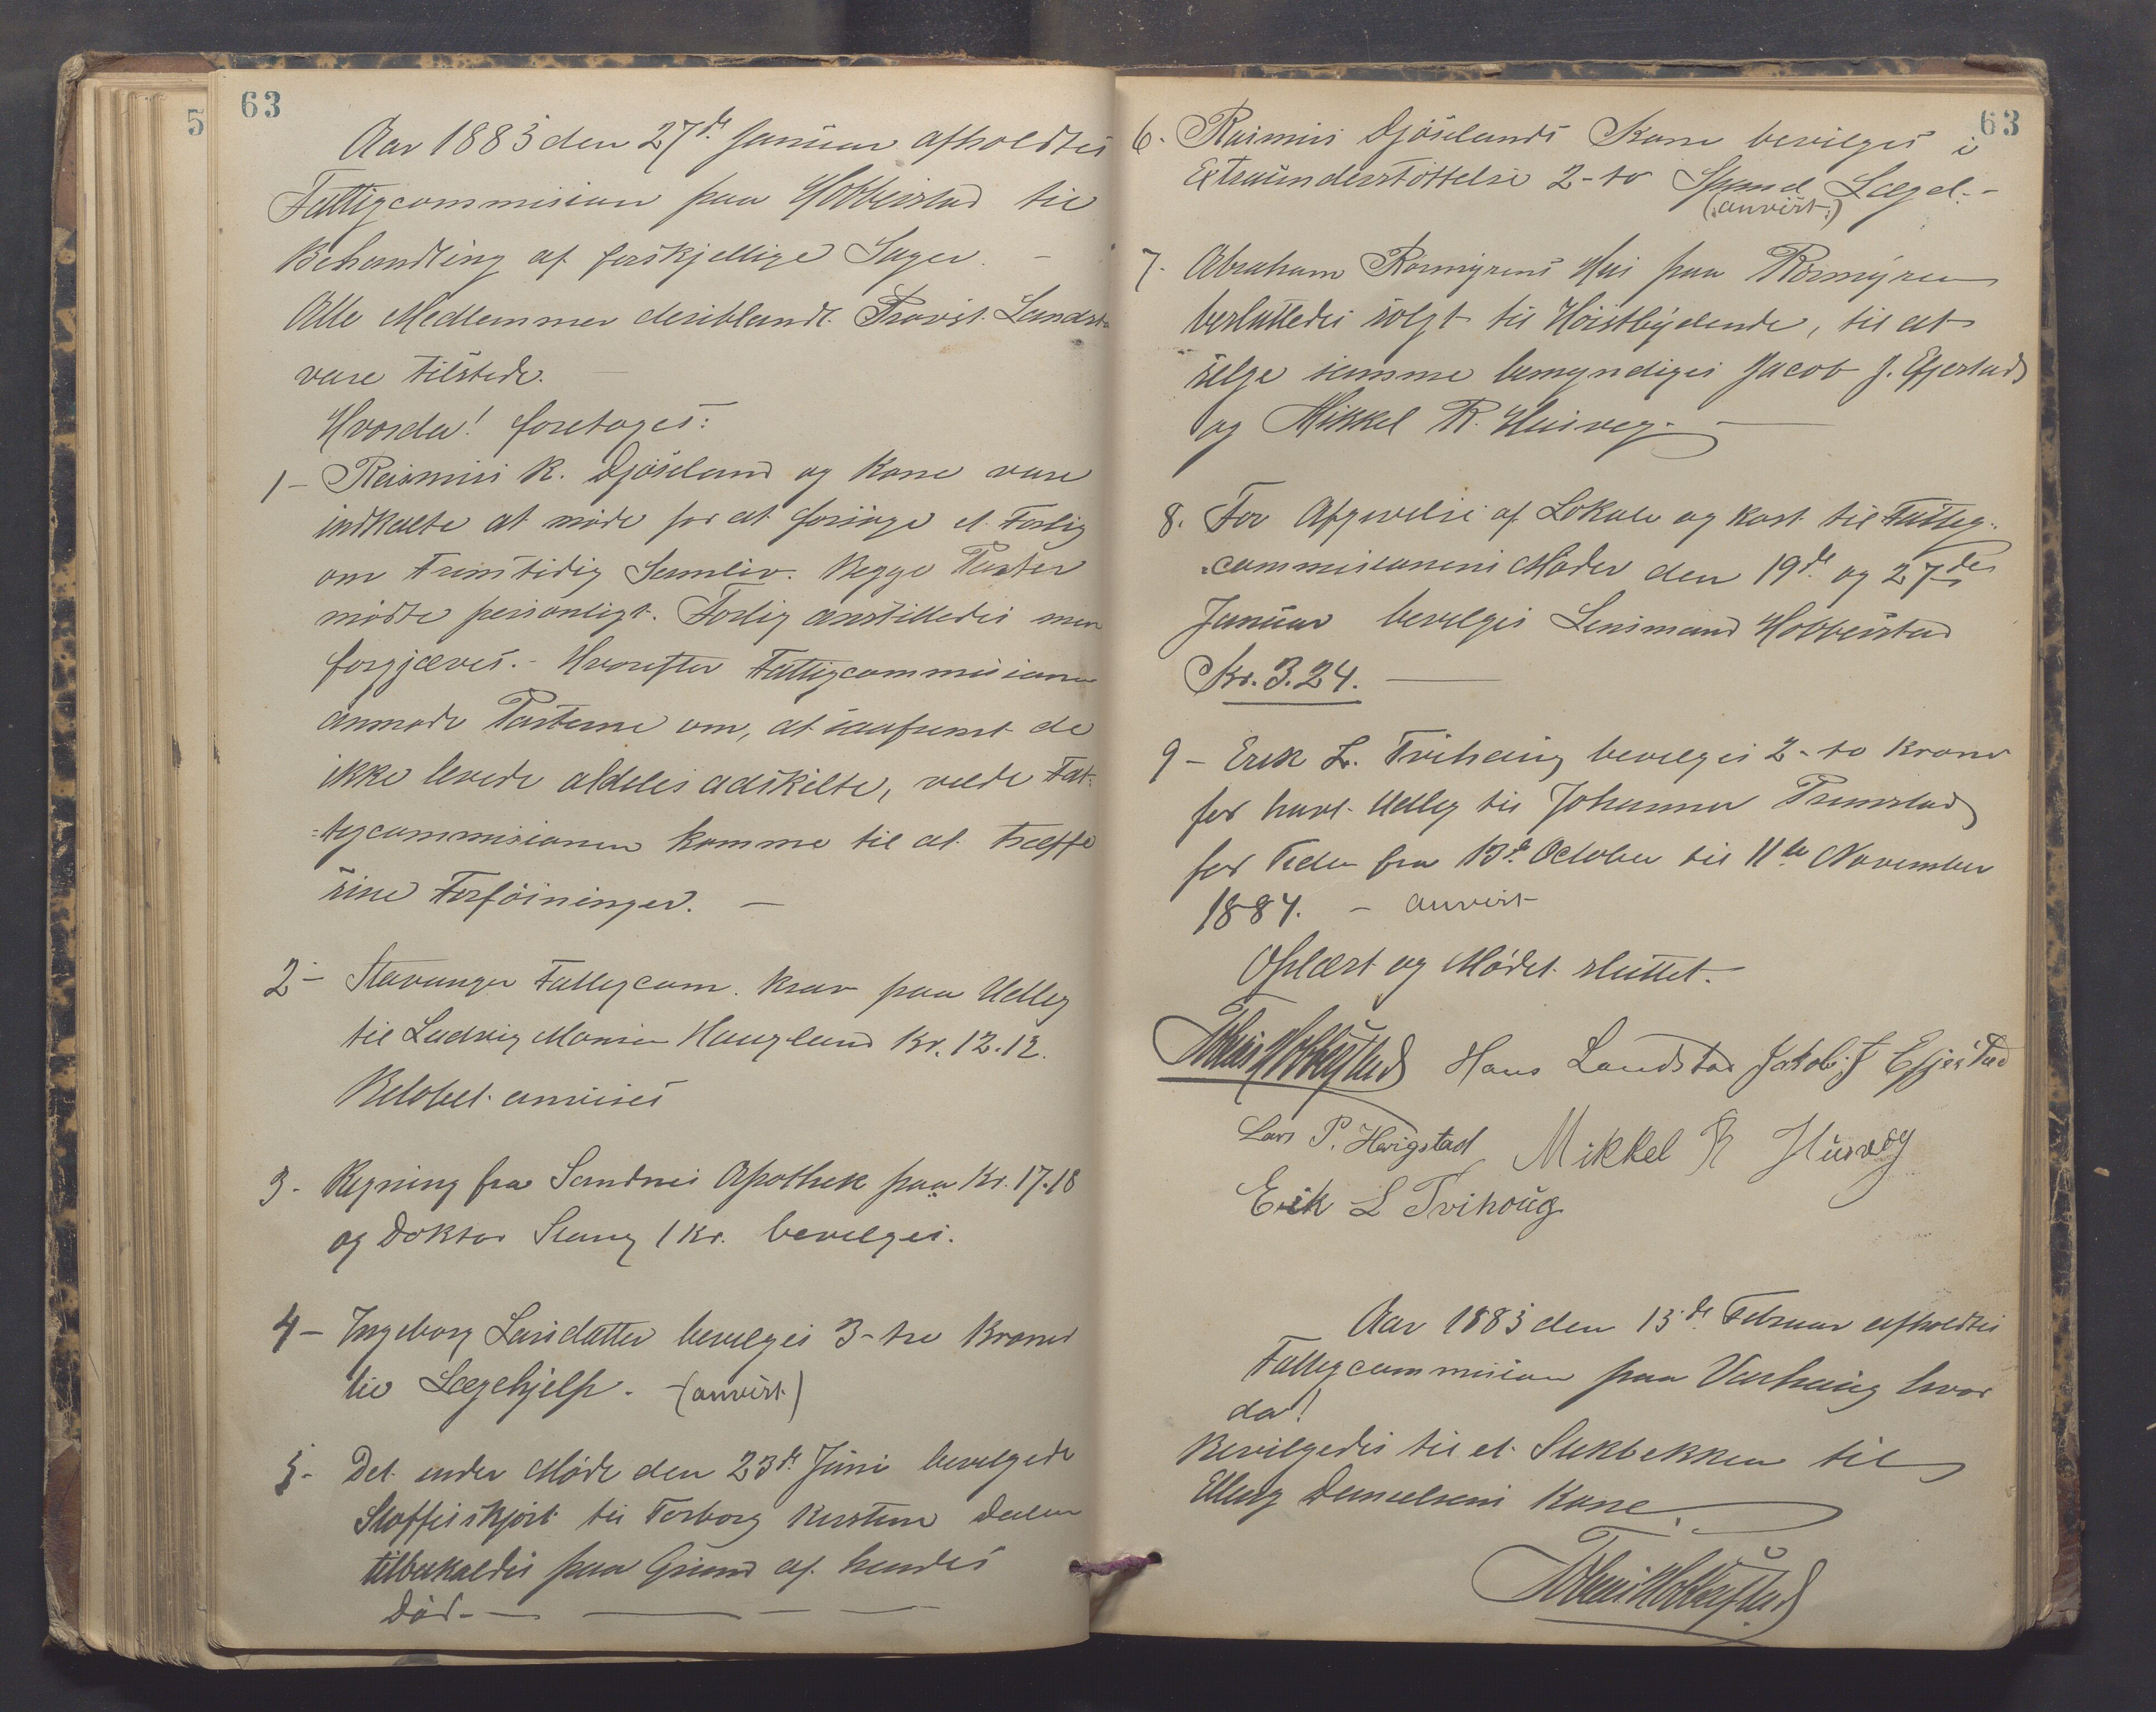 63
Aar 1885 den 27de Januar afholdtes
Fattigcommision paa Hobberstad til
Behandling af forskjellige Sager. –
Alle Medlemmer deriblandt Provst Landst.
vare tilstede. –
Hvorda! foretoges:
1 – Rasmus R. Djöseland og Kone vare
indkaldte at möde for at forsöge et Forlig
om fremtidig Samliv. Begge Parter
mödte personligt. Forlig anstilledes men
forgjæves. – Hvorefter Fattigcommisionen
anmode Parterne om, at saafremt de
ikke levede aldeles adskilte, vilde Fat-
=tigcommisionen komme til at træffe
sine Forföininger. –
2 – Stavanger Fattigcom. Krav paa Udlæg
til Ludvig Monsen Haugland Kr. 12.12.
Belöbet anvises
3. Regning fra Sandnes Apothek paa Kr. 17.18
og Doktor Stang 1 Kr. bevilges.
4 – Ingeborg Larsdatter bevilges 3 – tre Kroner
til Lægehjelp. – (anvist)
5 – Det under Möde den 23de Juni bevilgede
Stoffesskjört til Torborg Kirstine Dalen
tilbakaldes paa Grund af hendes
Död. –
63
6. Rasmus Djöselands Kone bevilges i
Extraunderstöttelse 2 – to Spand Lægd. –
(anvist)
7. Abraham Rosmyrens Hus paa Rosmyren
besluttedes solgt til Höistbydende, til at
selge samme bemyndiges Jacob J. Efjestad
og Mikkel R. Husveg. –
8. For Afgivelse af Lokale og Kost til Fattig-
=commisionens Möder den 19de og 27des
Januar bevilges Lensmand Hobberstad
Kr. 3.24. –
9 – Erik L. Tvihaug bevilges 2 – to Kroner
for havt Udlæg til Johanna Tunstad
for Tiden fra 13de October til 11te November
1884. – anvist
Oplæst og Mödet sluttet. –
Tobias Hobberstad Hans Landstad Jakob J Efjestad
Lars P. Hövigstad Mikkel R Husvæg
Erik L Tvihoug
Aar 1885 den 15de Februar afholdtes
Fattigcommision paa Varhaug hvor
da!
Bevilgedes til et Stekbekken til
Elling Danielsens Kone.
Tobias Hobberstad